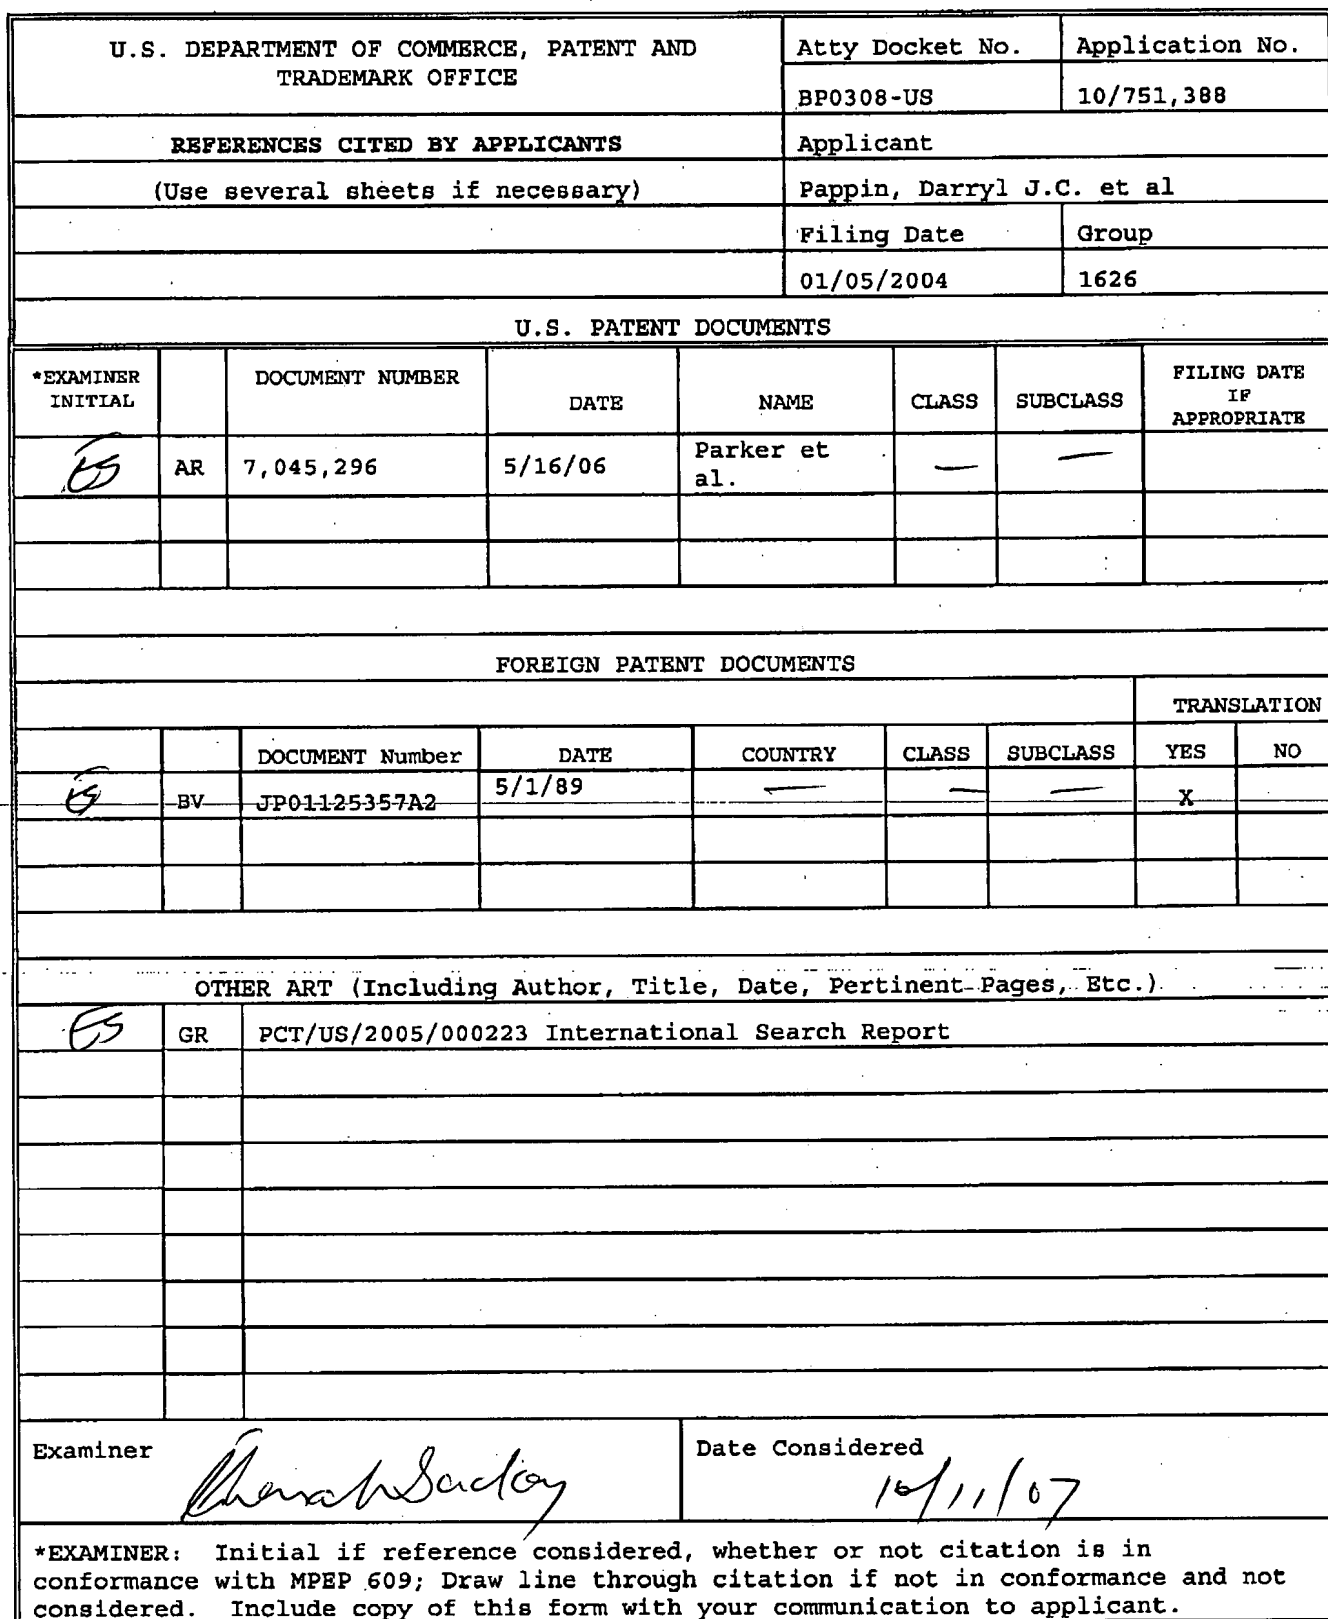 U.S. DEPARTMENT OF COMMERCE, PATENT AND TRADEMARK OFFICE
Atty Docket No.
Application No.
BP0308-US
10/751,388
REFERENCES CITED BY APPLICANTS
Applicant
(Use several sheets if necessary)
Pappin, Darryl J.C. et al
Filing Date
Group
01/05/2004
1626
U.S. PATENT DOCUMENTS
*EXAMINER INITIAL
DOCUMENT NUMBER
DATE
NAME
CLASS
SUBCLASS
FILING DATE IF APPROPRIATE
ES AR 7,045,296 5/16/06 Parker et al. — —
FOREIGN PATENT DOCUMENTS
TRANSLATION
DOCUMENT Number DATE COUNTRY CLASS SUBCLASS YES NO
ES BV JP01125357A2 5/1/89 — — — X
OTHER ART (Including Author, Title, Date, Pertinent Pages, Etc.)
ES GR PCT/US/2005/000223 International Search Report
Examiner
Date Considered
10/11/07
*EXAMINER: Initial if reference considered, whether or not citation is in
conformance with MPEP 609; Draw line through citation if not in conformance and not
considered. Include copy of this form with your communication to applicant.